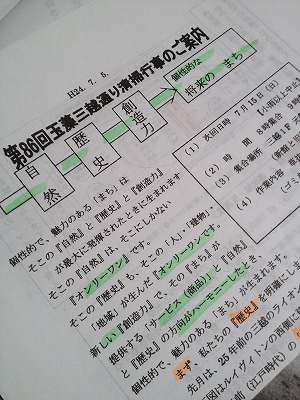 H24. 7. 5.
第86回玉藻三越通り清掃行事のご案内
自然
歴史
創造力
個性的な
将来の まち
(1) 次回日時 7月15日(日)
(2) 時 間 8時集合
(3) 集合場所 三越
(4) 作業内容
個性的で、魅力のある「まち」は
そこの『自然』と『歴史』と『創造力』
が最大に発揮されたときに生まれます
そこの『自然』は、そこにしかない
『オンリーワン』です。
そこの『歴史』も、そこの「人」、「建物」、
「地域」が生んだ『オンリーワンです。
新しい『創造力』で、その『まち』が
提供する『サービス(商品)』が『自然』
と『歴史』の方向がハーモニーしたとき、
個性的で、魅力のある「まち」が生まれます。
まず 私たちの『歴史』を明確にしま
先月は、25年前の三越のライオン
図はルイヴィトンの西側に
(江戸時代)